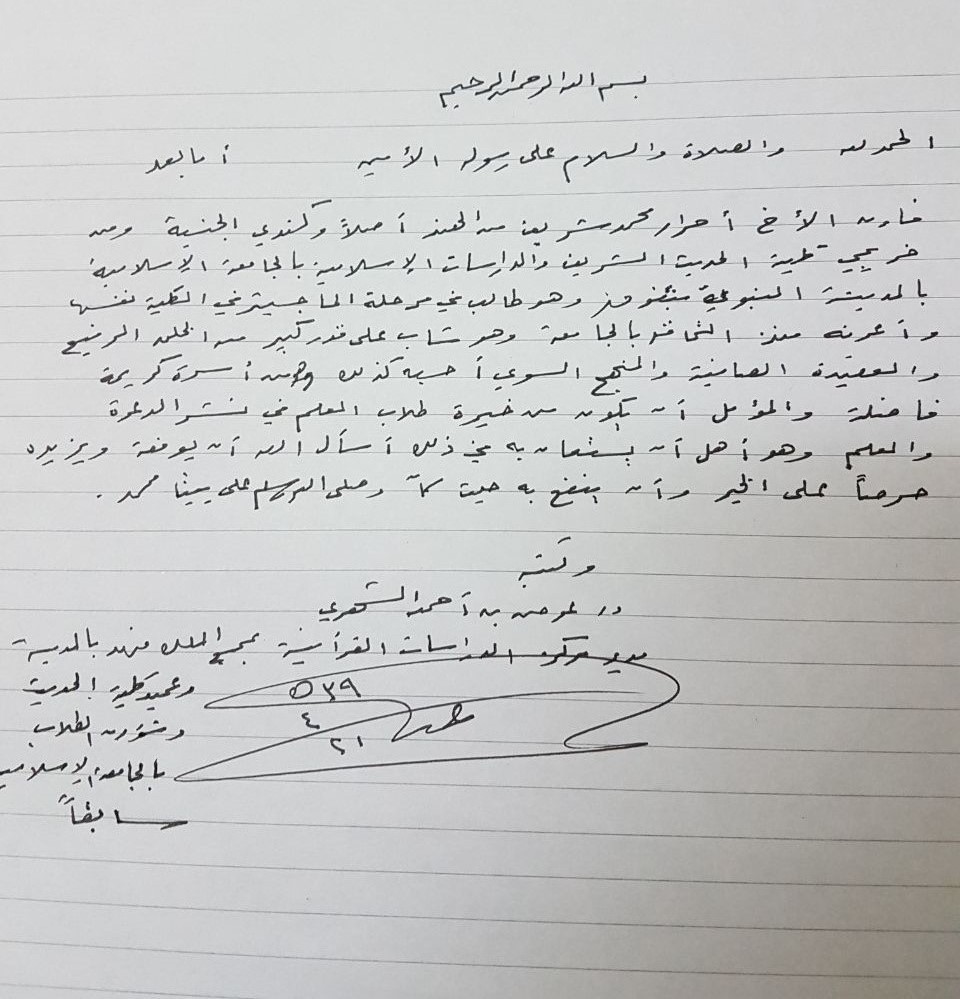 بسم الله الرحمن الرحيم
الحمد لله والصلاة والسلام على رسوله الأمين أما بعد
فإن الأخ أحرار محمد شريف من الهند أصلاً وكندي الجنسية ومن
خريجي كلية الحديث الشريف والدراسات الإسلامية بالجامعة الإسلامية
بالمدينة النبوية بتفوق وهو طالب في مرحلة الماجستير في الكلية نفسها
وأعرفه منذ التحاقه بالجامعة وهو شاب على قدر كبير من الخلق الرفيع
والعقيدة الصافية والمنهج السوي أحسبه كذلك ومن أسرة كريمة
فاضلة والمؤمل أن يكون من خيرة طلاب العلم في نشر الدعوة
والعلم وهو أهل أن يستعان به في ذلك أسأل الله أن يوفقه ويزيده
حرصاً على الخير وأن ينفع به حيث كان وصلى الله وسلم على نبينا محمد .
وكتبه
د. عوض بن أحمد الشهري
مدير مركز الدراسات القرآنية بمجمع الملك فهد بالمدينة
وعميد كلية الحديث
وشؤون الطلاب
بالجامعة الإسلامية
سابقاً
٥٣٩
٤
٢١